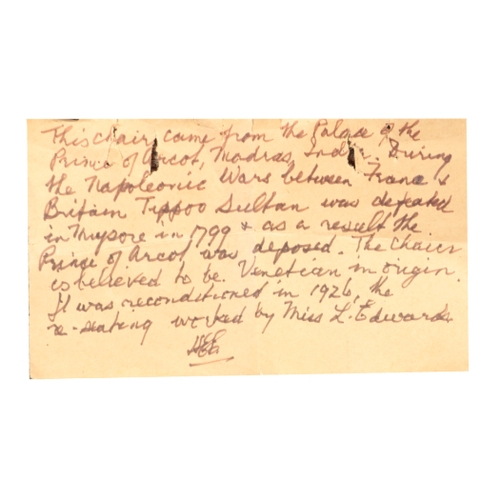 This chair came from the Palace of the
Prince of Arcot, Madras, India. During
the Napoleonic Wars between France &
Britain Tippoo Sultan was defeated
in Mysore in 1799 & as a result the
Prince of Arcot was deposed. The Chair
is believed to be Venetian in origin.
It was reconditioned in 1926, the
re-seating worked by Miss L. Edwards.